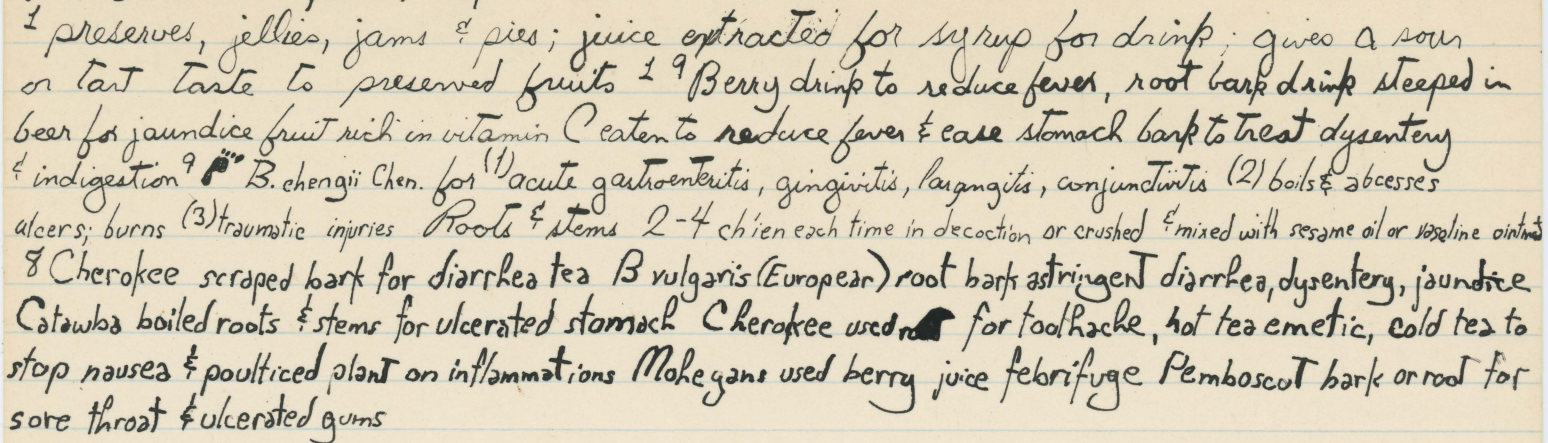 1 preserves, jellies, jams & pies; juice extracted for syrup for drink; gives a sour
or tart taste to preserved fruits 1 9 Berry drink to reduce fever, root bark drink steeped in
beer for jaundice fruit rich in vitamin C eaten to reduce fever & ease stomach bark to treat dysentery
& indigestion 9 B. chengii Chen. for (1) acute gastroenteritis, gingivitis, laryngitis, conjunctivitis (2) boils & abcesses
ulcers; burns (3) traumatic injuries Roots & stems 2-4 ch'ien each time in decoction or crushed & mixed with sesame oil or vaseline ointmt
8 Cherokee scraped bark for diarrhea tea B vulgaris (European) root bark astringent diarrhea, dysentery, jaundice
Catawba boiled roots & stems for ulcerated stomach Cherokee used for toothache, hot tea emetic, cold tea to
stop nausea & poulticed plant on inflammations Mohegans used berry juice febrifuge Pemboscot bark or root for
sore throat & ulcerated gums